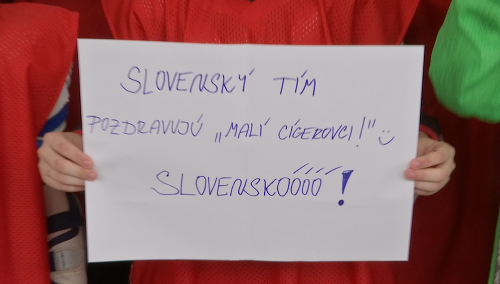 SLOVENSKÝ TÍM
POZDRAVUJÚ „MALÍ CÍGEROVCI!"
SLOVENSKOÓÓÓ!